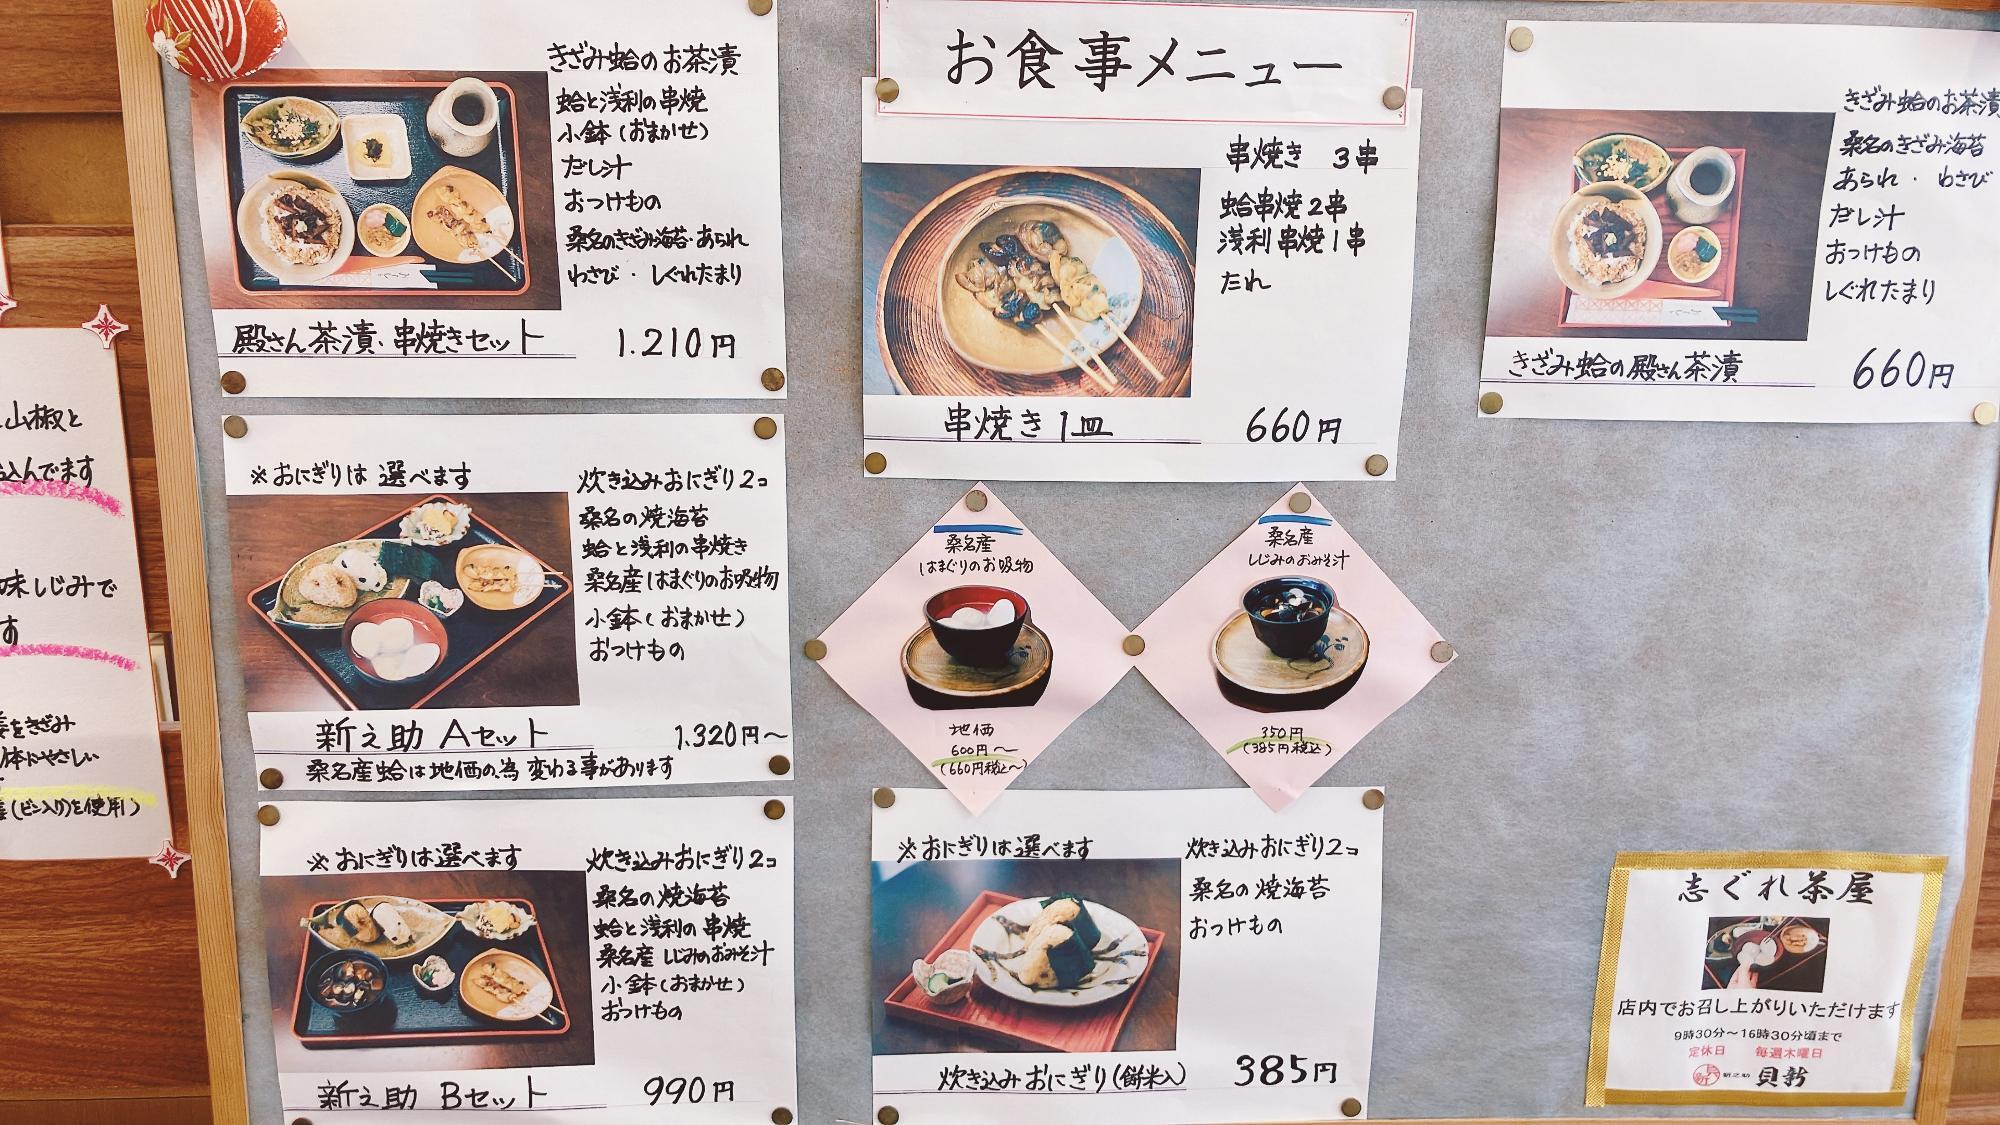 お食事メニュー
きざみ蛤のお茶漬
蛤と浅利の串焼
小鉢(おまかせ)
だし汁
おつけもの
桑名のきざみ海苔・あられ
わさび・しぐれたまり
殿さん茶漬・串焼きセット 1.210円
※おにぎりは選べます
炊き込みおにぎり2コ
桑名の焼海苔
蛤と浅利の串焼き
桑名産はまぐりのお吸物
小鉢(おまかせ)
おつけもの
新之助 Aセット 1.320円〜
桑名産蛤は地価の為変わる事があります
※おにぎりは選べます
炊き込みおにぎり2コ
桑名の焼海苔
蛤と浅利の串焼
桑名産しじみのおみそ汁
小鉢(おまかせ)
おつけもの
新之助 Bセット 990円
串焼き 3串
蛤串焼2串
浅利串焼1串
たれ
串焼き1皿 660円
桑名産
はまぐりのお吸物
地価
600円〜
(660円税込〜)
桑名産
しじみのおみそ汁
350円
(385円税込)
※おにぎりは選べます
炊き込みおにぎり2コ
桑名の焼海苔
おつけもの
炊き込みおにぎり(餅米入) 385円
きざみ蛤のお茶漬
桑名のきざみ海苔
あられ・わさび
だし汁
おつけもの
しぐれたまり
きざみ蛤の殿さん茶漬 660円
志ぐれ茶屋
店内でお召し上がりいただけます
9時30分〜16時30分頃まで
定休日 毎週木曜日
新之助 貝新
山椒と
込んでます
味しじみで
す
をきざみ
体にやさしい
(ビン入り)を使用)